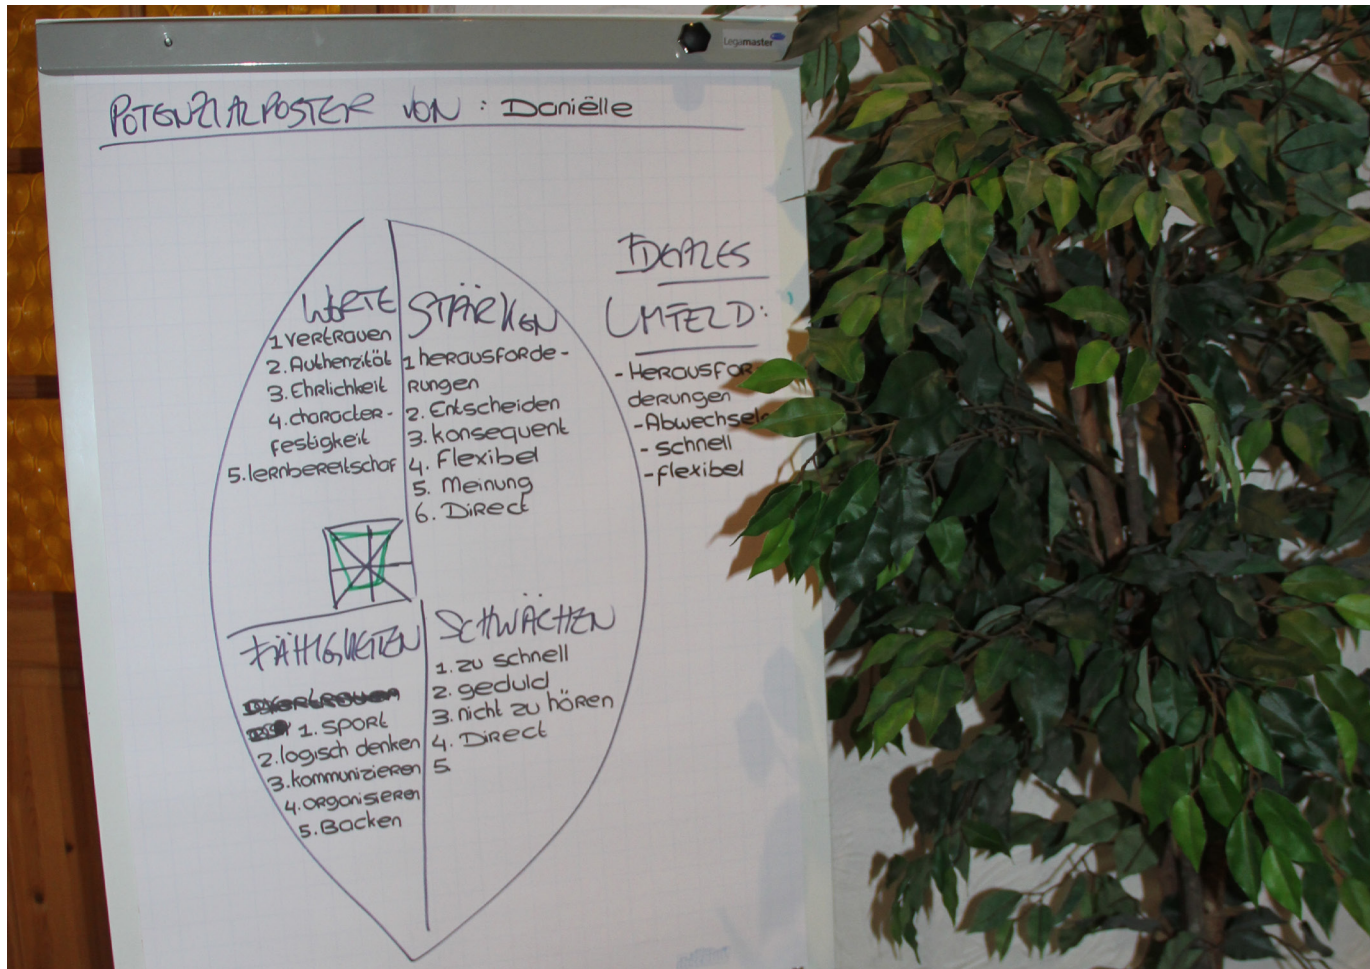 Legamaster
POTENZIALPOSTER VON : Daniëlle
WERTE
1 vertrauen
2. Authenzität
3. Ehrlichkeit
4. character-
festigkeit
5. lernbereitschaf
STÄRKEN
1 herausforde-
rungen
2. Entscheiden
3. konsequent
4. Flexibel
5. Meinung
6. Direct
IDEALES
UMFELD:
- Herausfor
derungen
- Abwechseln
- schnell
- flexibel
FÄHIGKEITEN
1. sport
2. logisch denken
3. kommunizieren
4. organisieren
5. Backen
SCHWÄCHEN
1. zu schnell
2. geduld
3. nicht zu hören
4. Direct
5.